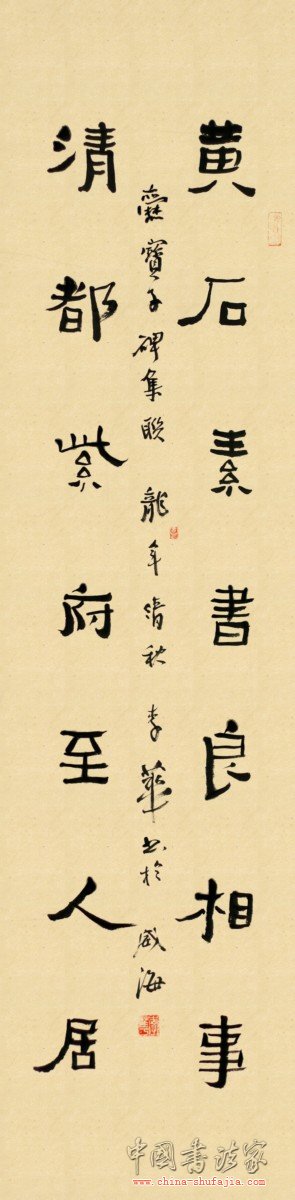 黄石素書良相事
清都紫府至人居
爨寶子碑集聯 龍年清秋 李華書於威海
中国书法家
www.china-shufajia.com